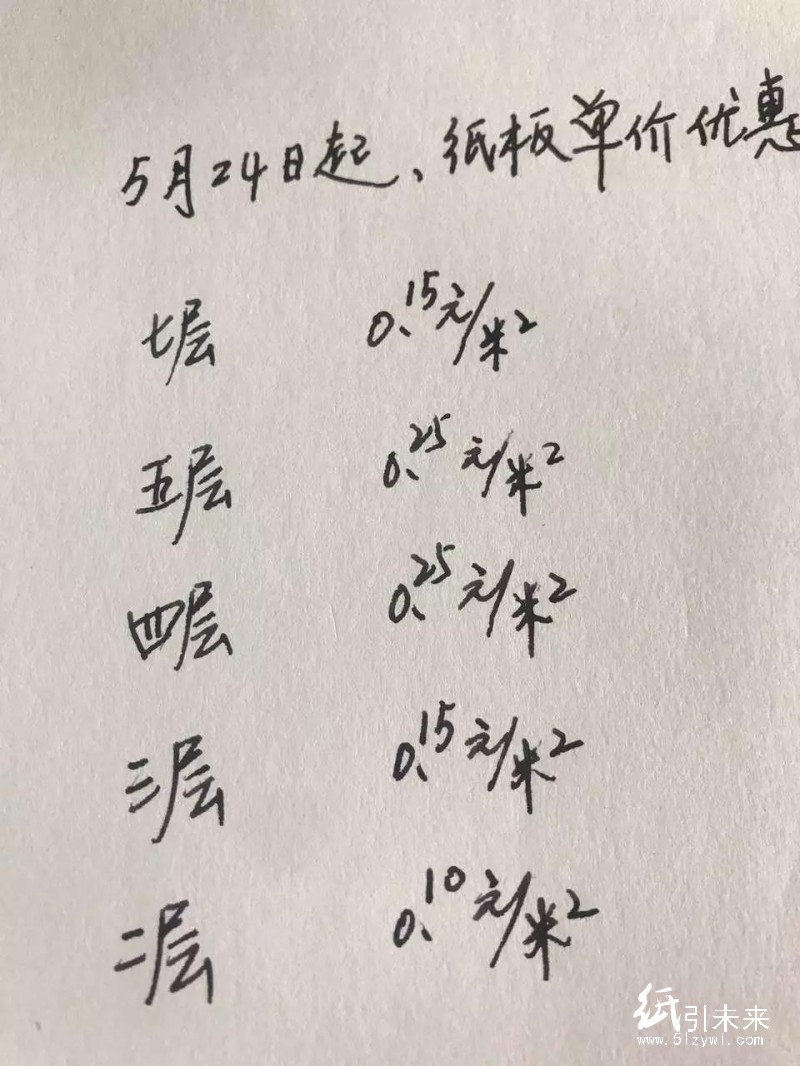 5月24日起、纸板单价优惠
七层 0.15元/米2
五层 0.25元/米2
四层 0.25元/米2
三层 0.15元/米2
二层 0.10元/米2
纸引未来
www.51zywl.com